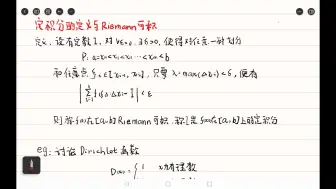 定积分的定义与Riemann可积
定义:设有定数I,对∀ε>0,∃δ>0,使得对任意一种划分
P:a=x₀<x₁<x₂…<xₙ=b
和任意点ξᵢ∈[xᵢ₋₁,xᵢ],只要λ=max(Δxᵢ)<δ,便有
|∑ᵢ₌₁ⁿ f(ξᵢ)Δxᵢ-I|<ε
则称f(x)在[a,b]Riemann可积,称I是f(x)在[a,b]上的定积分
eg:讨论Dirichlet函数
D(x)={1 x为有理数